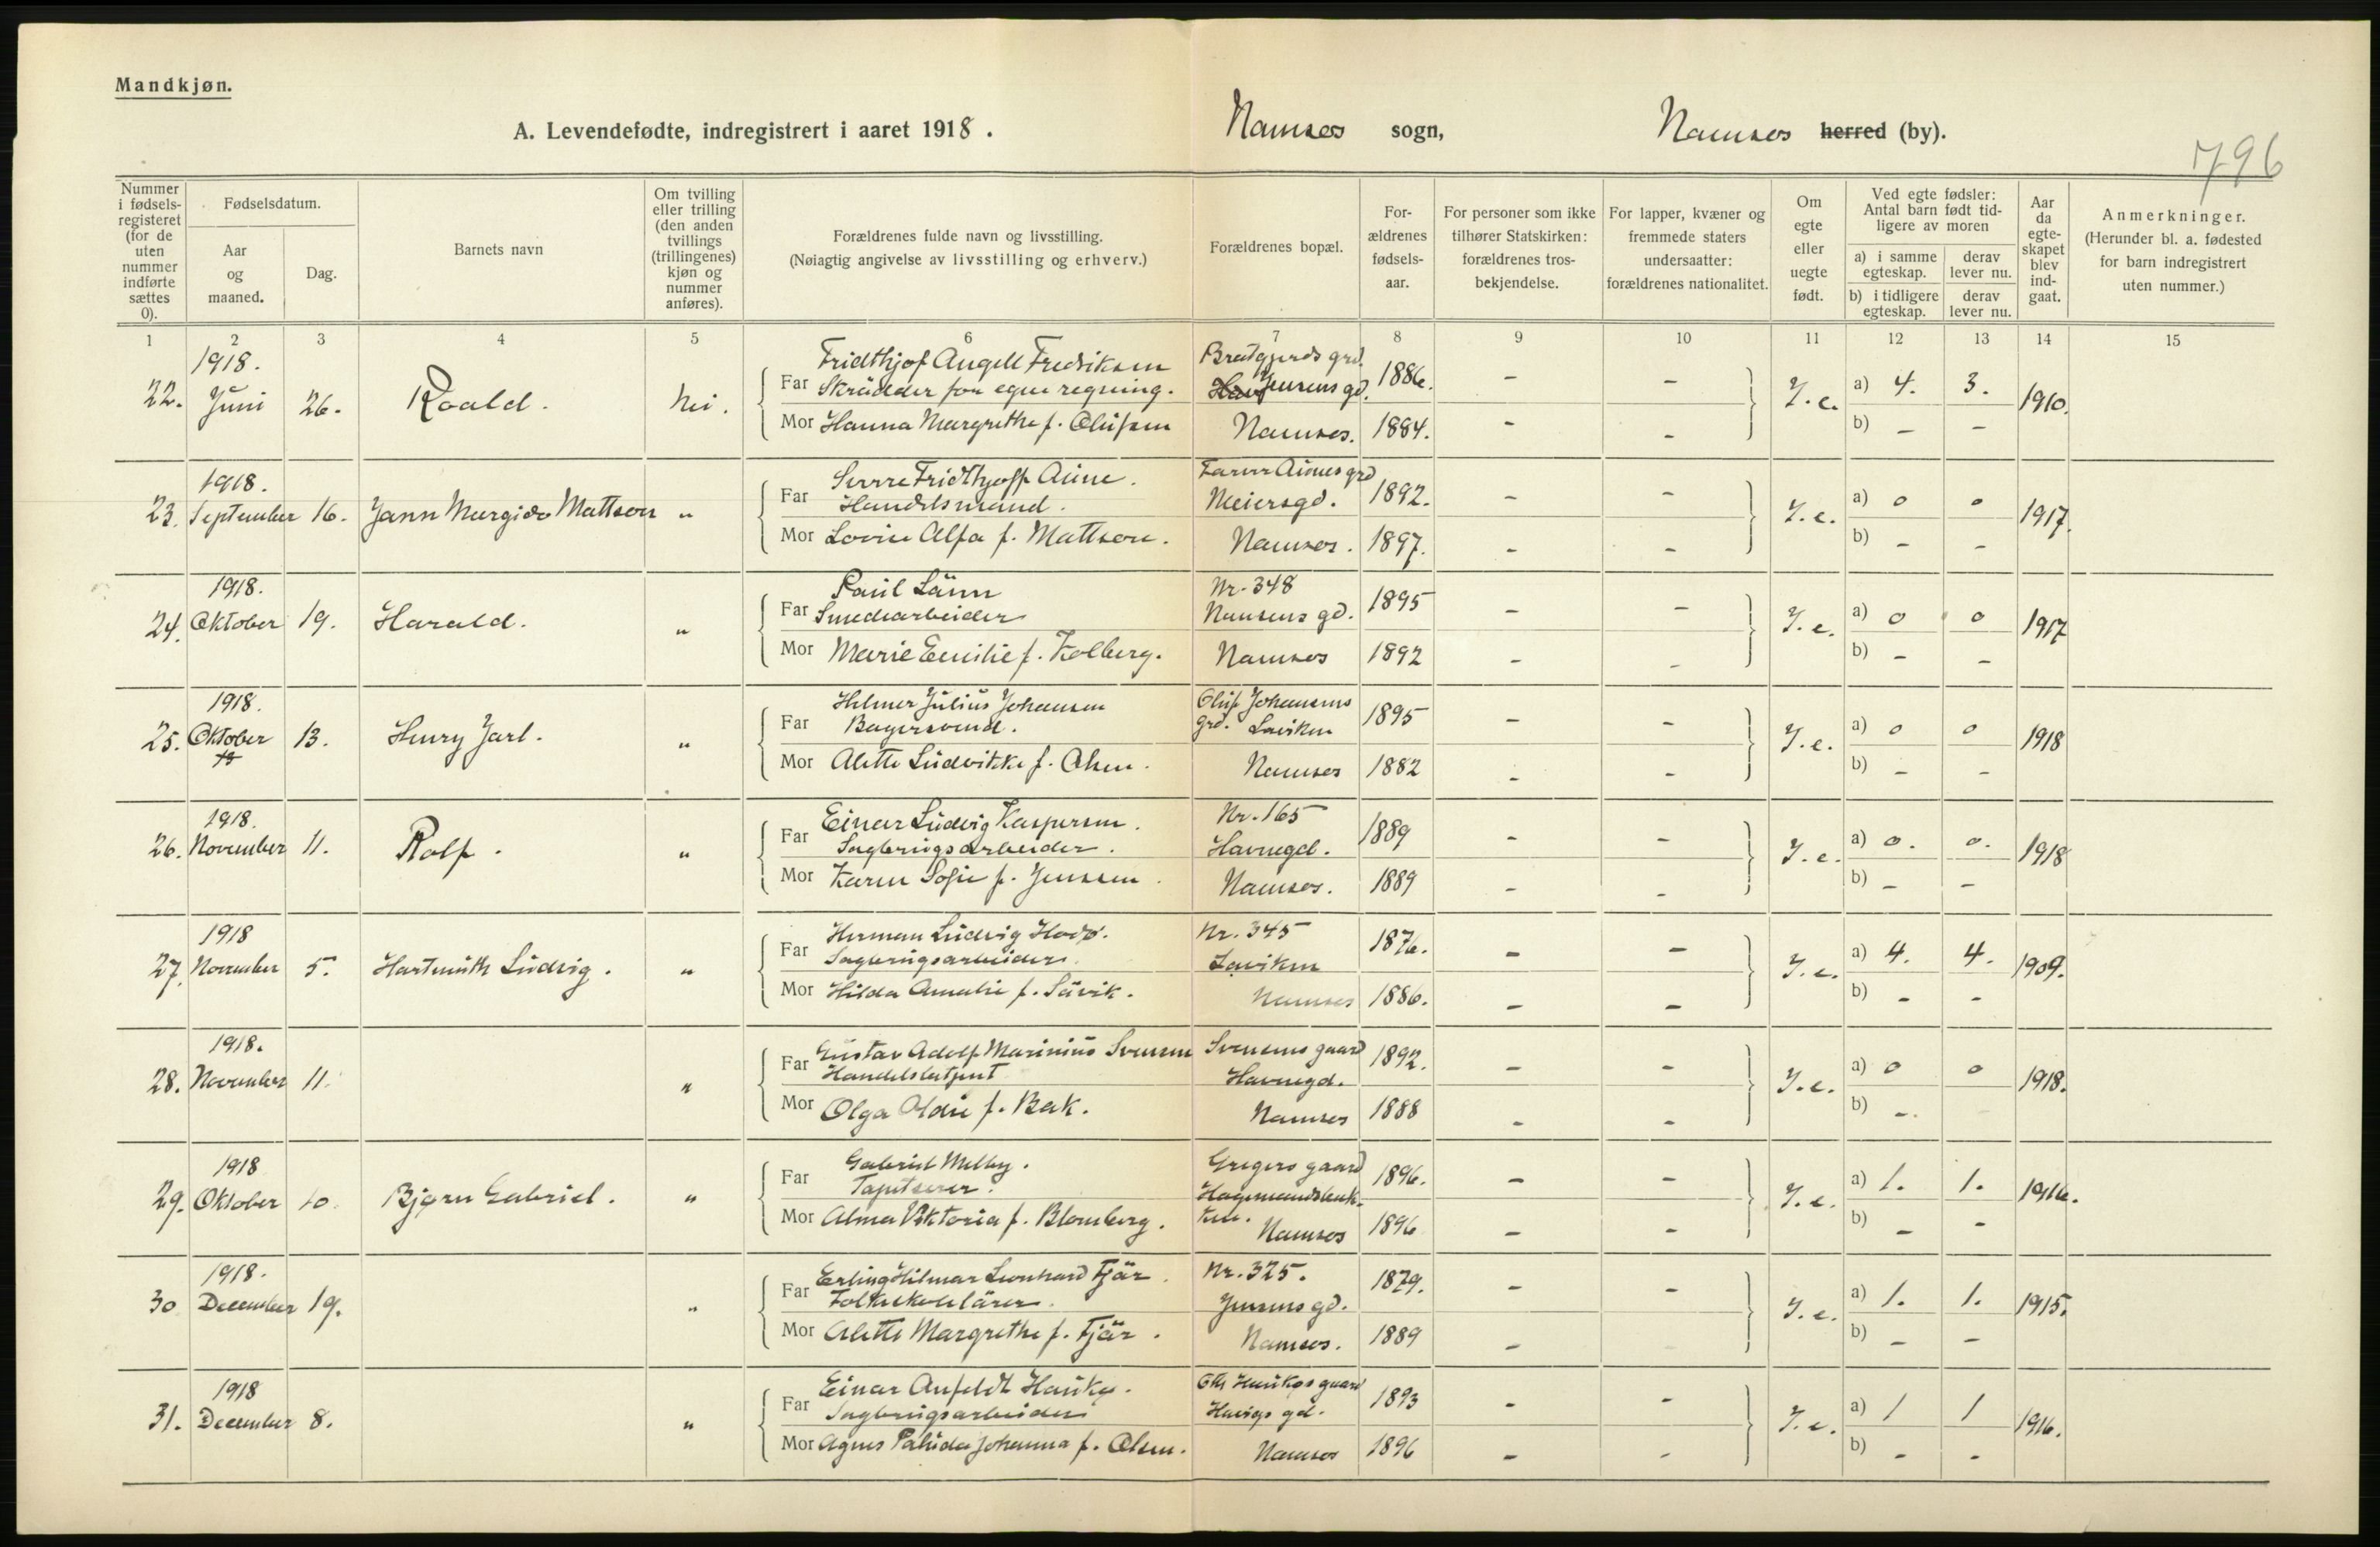 Mandkjøn.
A. Levendefødte, indregistrert i aaret 1918. Namsos sogn, Namsos herred (by).
796
Nummer i fødsels-registeret (for de uten nummer indførte sættes 0).
Fødselsdatum.
Aar og maaned.
Dag.
Barnets navn
Om tvilling eller trilling (den anden tvillings (trillingenes) kjøn og nummer anføres).
Forældrenes fulde navn og livsstilling.
(Nøiagtig angivelse av livsstilling og erhverv.)
Forældrenes bopæl.
For-ældrenes fødsels-aar.
For personer som ikke tilhører Statskirken: forældrenes tros-bekjendelse.
For lapper, kvæner og fremmede staters undersaatter: forældrenes nationalitet.
Om egte eller uegte født.
Ved egte fødsler: Antal barn født tid-ligere av moren
a) i samme egteskap.
derav lever nu.
b) i tidligere egteskap.
derav lever nu.
Aar da egte-skapet blev ind-gaat.
Anmerkninger.
(Herunder bl. a. fødested for barn indregistrert uten nummer.)
1 2 3 4 5 6 7 8 9 10 11 12 13 14 15
1918.
22. Juni 26. Roald. Nei.
Far Fridthjof Angell Fredriksen
Skrædder for egen regning. Jensens gd. 1886. - -
Mor Hanna Margrethe f. Olufsen Namsos. 1884. - -
I. e. a) 4. 3. 1910.
b) - -
1918.
23. September 16. Mattson "
Far Fridthjoff Aune.
Handelsmand. Meiersgd. 1892. - -
Mor Lovise Alfa f. Mattson. Namsos. 1897. - -
I. e. a) 0 0 1917.
b) - -
1918.
24. Oktober 19. Harald. "
Far Paul Lånn Nr. 348
Smedearbeider Nansens gd. 1895 - -
Mor Marie Emilie f. Kolberg. Namsos 1892 - -
I. e. a) 0 0 1917
b) - -
1918.
25. Oktober 13. Henry Jarl. "
Far Hilmar Julius Johansen Oluf Johansens
Bagersvend. grd. Laviken 1895 - -
Mor Alette Ludvikke f. Olsen. Namsos 1882 - -
I. e. a) 0 0 1918
b) - -
1918.
26. November 11. Rolf. "
Far Einar Ludvig Kaspersen. Nr. 165
Sagbrugsarbeider. Havnegd. 1889 - -
Mor Karen Sofie f. Jenssen. Namsos. 1889 - -
I. e. a) 0. 0. 1918
b) - -
1918
27. November 5. Hartmuth Ludvig. "
Far Herman Ludvig Hodø. Nr. 345
Sagbrugsarbeider. Laviken 1876. - -
Mor Hilda Amalie f. Sævik. Namsos 1886. - -
I. e. a) 4. 4. 1909.
b) - -
1918.
28. November 11. "
Far Gustav Adolf Marinius Svensen Svensens gaard
Handelsbetjent Havnegd. 1892. - -
Mor Olga Oldie f. Bak. Namsos 1888 - -
I. e. a) 0 0 1918.
b) -.
1918
29. Oktober 10. Bjørn Gabriel. "
Far Gabriel Melby. Gregers gaard
Tapetserer. 1896. - -
Mor Alma Viktoria f. Blomberg. Namsos 1896 - -
I. e. a) 1. 1. 1916.
b) - -
1918.
30 December 19. "
Far Erling Hilmar Leonhard Fjær. Nr. 325.
Folkeskolelærer. Jensens gd. 1879. - -
Mor Alette Margrethe f. Fjær. Namsos. 1889 -
I. e. a) 1. 1. 1915.
b) - -
1918
31. December 8. "
Far Einar Anfeldt Haukø. Haukøs gaard
Sagbrugsarbeider gd. 1893 - -
Mor Agnes Palida Johanna f. Olsen. Namsos 1896 - -
I. e. a) 1 1 1916.
b) - -